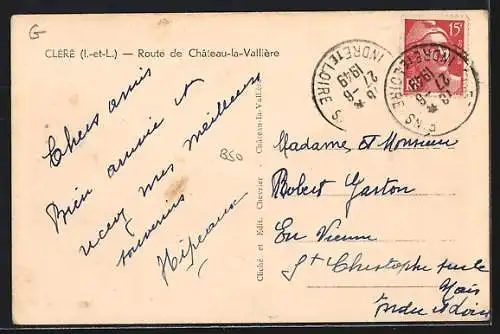 G
CLÉRÉ (I.-et-L.) — Route de Château-la-Vallière
Chers amis
Bien arrivée et
recevez mes meilleurs
souvenirs
Hipeaux
B50
Cliché et Edit. Chevrier - Château-la-Vallière
15f
INDRE ET LOIRE
18
27-6
1949
INDRE ET LOIRE
18
27-6
1949
Madame, et Monsieur
Robert Gaston
En Vienne
St Christophe sur le
Nais
Indre et Loire